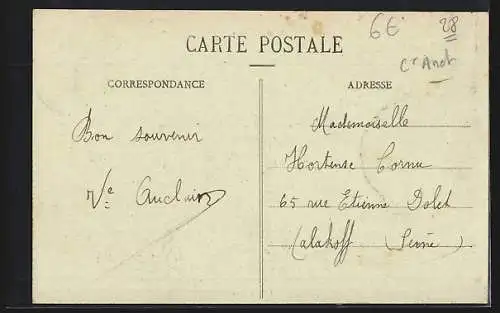 6€ 28
CARTE POSTALE
Ct Anot
CORRESPONDANCE
Bon souvenir
Vve Auclair
ADRESSE
Mademoiselle
Hortense Cornu
65 rue Etienne Dolet
Malakoff (Seine)